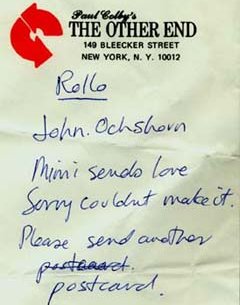 Paul Colby's
THE OTHER END
149 BLEECKER STREET
NEW YORK, N. Y. 10012
Rollo
John. Ochshorn
Mimi sends love
Sorry couldnt make it.
Please send another
postcard.
postcard.